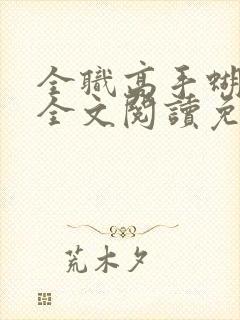 全職高手蝴
全文閱讀免
荒木夕